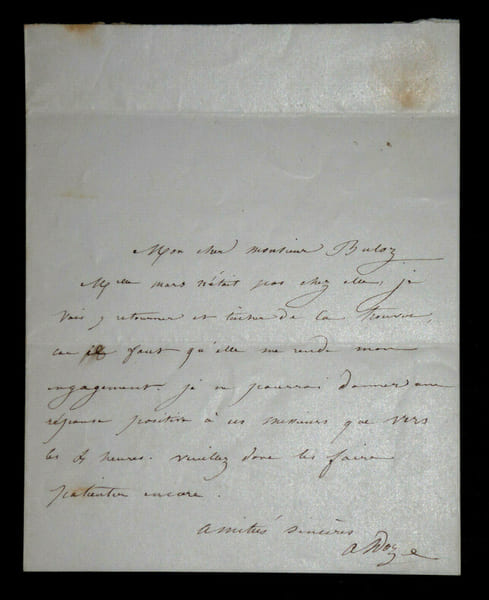 Mon cher monsieur Buloz
Mlle mars n'était pas chez elle, je
vais y retourner et tâcher de la trouver,
car il faut qu'elle me rende mon
engagement je ne pourrai donner une
réponse positive à ces messieurs que vers
les 4 heures. veuillez donc les faire
patienter encore.
amitiés sincères
a Doze